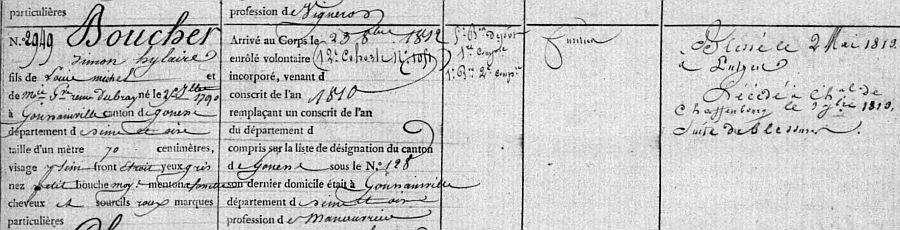 particulières
profession de Vigneron
N.o 2949 Boucher
Simon hylaire
fils de Louis michel et
de Marie né le 1790
à Gonnainville canton de gonesse
département de seine et oise
taille d'un mètre 70 centimètres,
visage plein front étroit yeux gris
nez petit bouche moy. menton à fossette
cheveux et sourcils roux marques
particulières
Arrivé au Corps le 23 8bre 1812
enrôlé volontaire 12e Cohorte
incorporé, venant d
conscrit de l'an 1810
remplaçant un conscrit de l'an
du département d
compris sur la liste de désignation du canton
de Gonesse sous le No 128
son dernier domicile était à Gonnainville
département de seine et oise
profession de Manouvrier
5e Bon dépôt
1re Compie
1er Bon 2e Compie
Blessé le 2 Mai 1813.
a Lutzen
Décédé à
le 7bre 1813,
Suite de blessures.